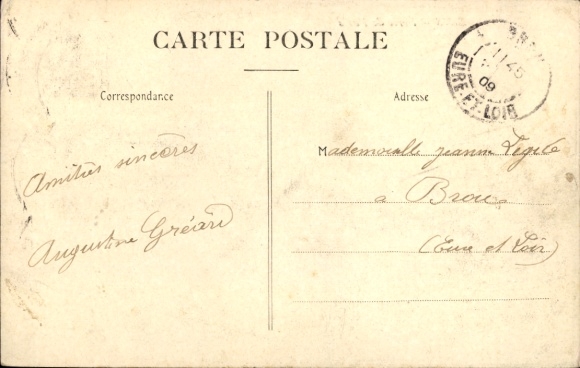 CARTE POSTALE
Correspondance
Adresse
11 45
09
EURE-ET-LOIR
Amitiés sincères
Augustine Gréard
Mademoiselle Jeanne
à Brou
(Eure et Loir)